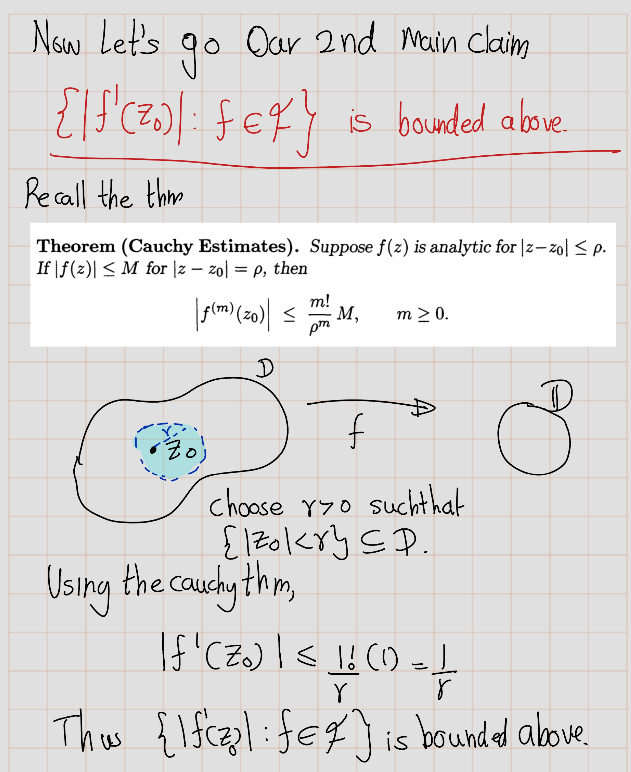 Now Let's go Our 2nd Main Claim
{|f'(z₀)| : f ∈ ℱ} is bounded above.
Recall the thm
Theorem (Cauchy Estimates). Suppose f(z) is analytic for |z−z₀| ≤ ρ.
If |f(z)| ≤ M for |z − z₀| = ρ, then
|f⁽ᵐ⁾(z₀)| ≤ m!/ρᵐ M, m ≥ 0.
D
𝔻
r
z₀
f
choose r>0 suchthat
{|z₀|<r} ⊆ D.
Using the cauchy thm,
|f'(z₀)| ≤ 1!/r (1) = 1/r
Thus {|f'(z₀)| : f ∈ ℱ} is bounded above.